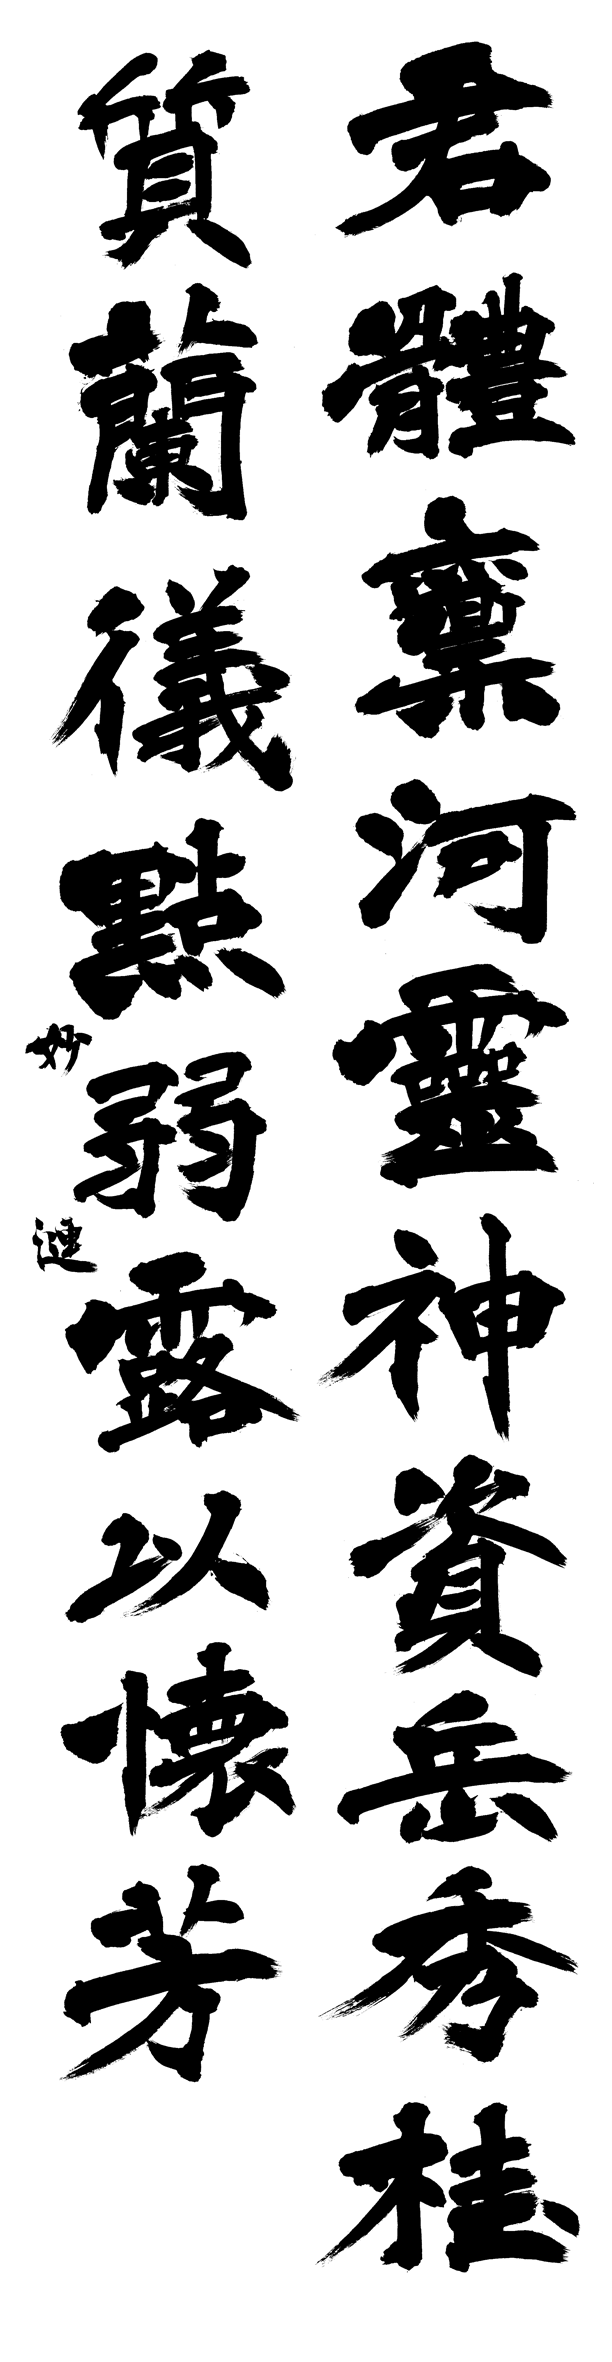 君體稟河靈神資岳秀桂
質蘭儀點弱露以懷芳
妙漣